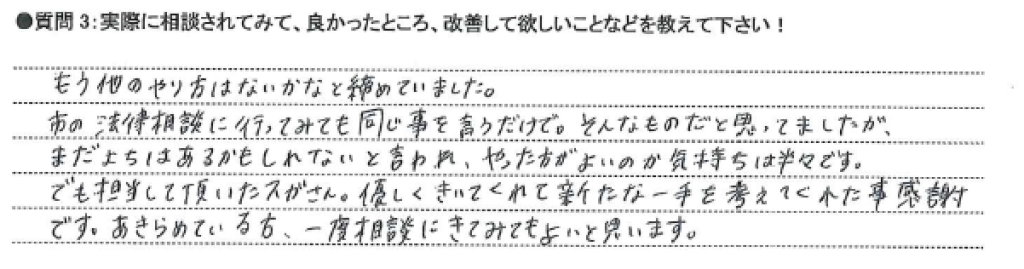 ●質問3:実際に相談されてみて、良かったところ、改善して欲しいことなどを教えて下さい!
もう他のやり方はないかなと締めていました。
市の法律相談に行ってみても同じ事を言うだけで。そんなものだと思ってましたが、
まだよちはあるかもしれないと言われ、やった方がよいのか気持ちは半々です。
でも担当して頂いたスガさん。優しくきいてくれて新たな一手を考えてくれた事感謝
です。あきらめている方、一度相談にきてみてもよいと思います。